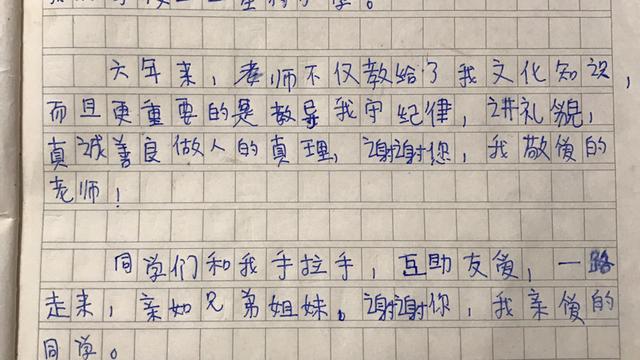 六年来，老师不仅教给了我文化知识，
而且更重要的是教导我守纪律，讲礼貌，
真诚善良做人的真理，谢谢您，我敬爱的
老师！
同学们和我手拉手，互助友爱，一路
走来，亲如兄弟姐妹。谢谢你，我亲爱的
同学。